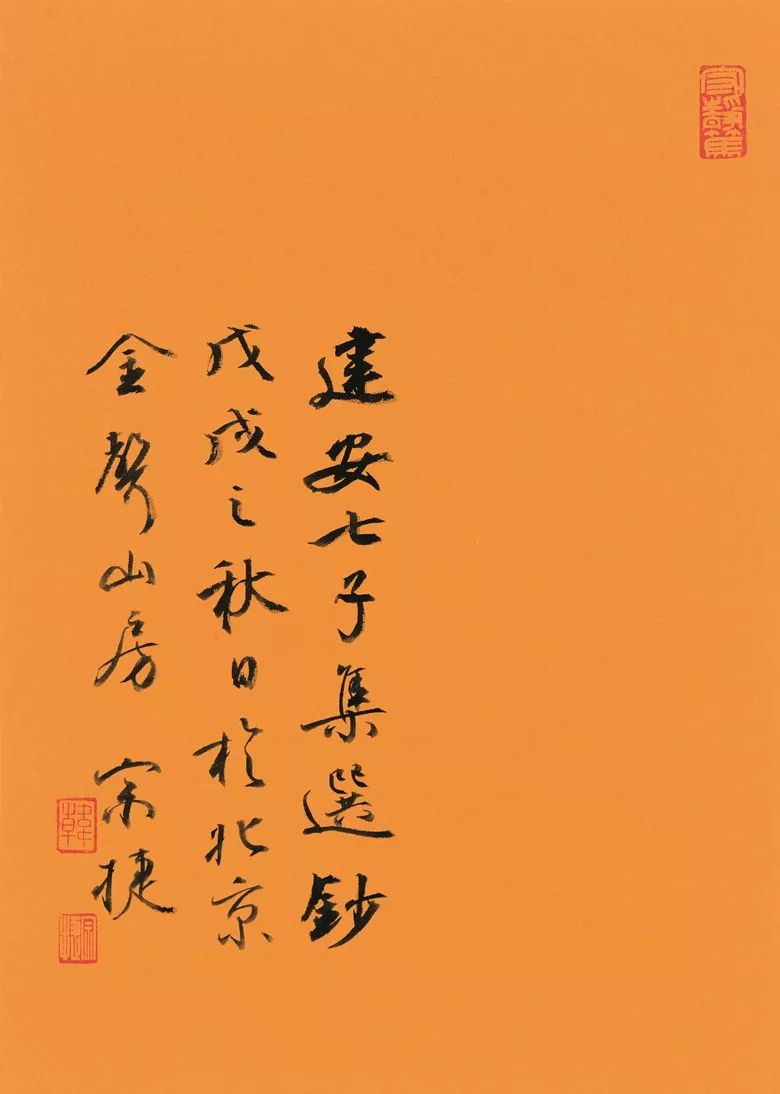 守靜篤
建安七子集選鈔
戊戌之秋日於北京
金聲山房 宗捷
韓